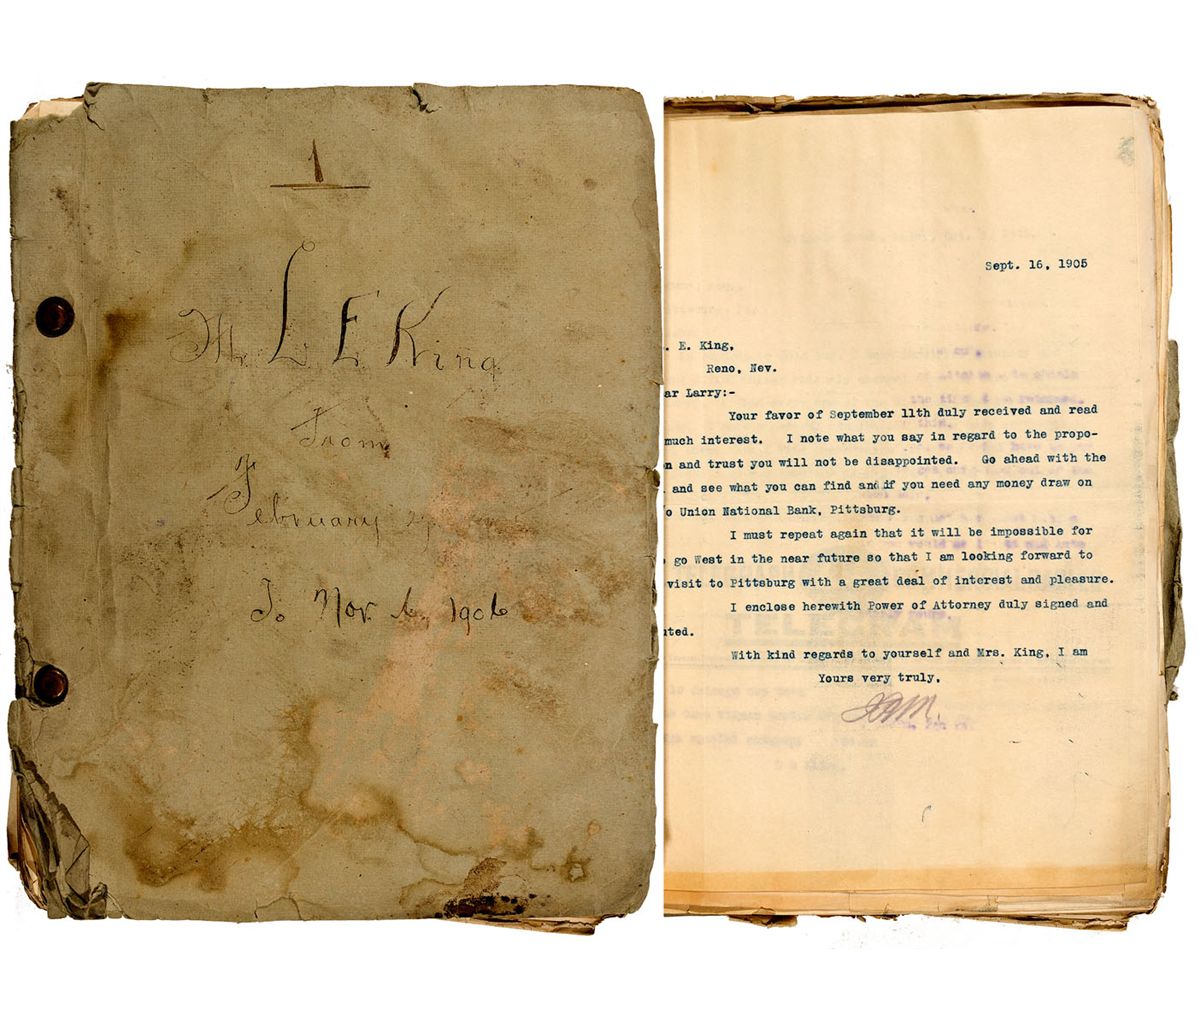 1
Mr L E King
From
February
To Nov. 6, 1906
Sept. 16, 1905
. E. King,
Reno, Nev.
ar Larry:-
Your favor of September 11th duly received and read
much interest. I note what you say in regard to the propo-
n and trust you will not be disappointed. Go ahead with the
and see what you can find and if you need any money draw on
o Union National Bank, Pittsburg.
I must repeat again that it will be impossible for
go West in the near future so that I am looking forward to
visit to Pittsburg with a great deal of interest and pleasure.
I enclose herewith Power of Attorney duly signed and
uted.
With kind regards to yourself and Mrs. King, I am
Yours very truly,
TELEGRAM